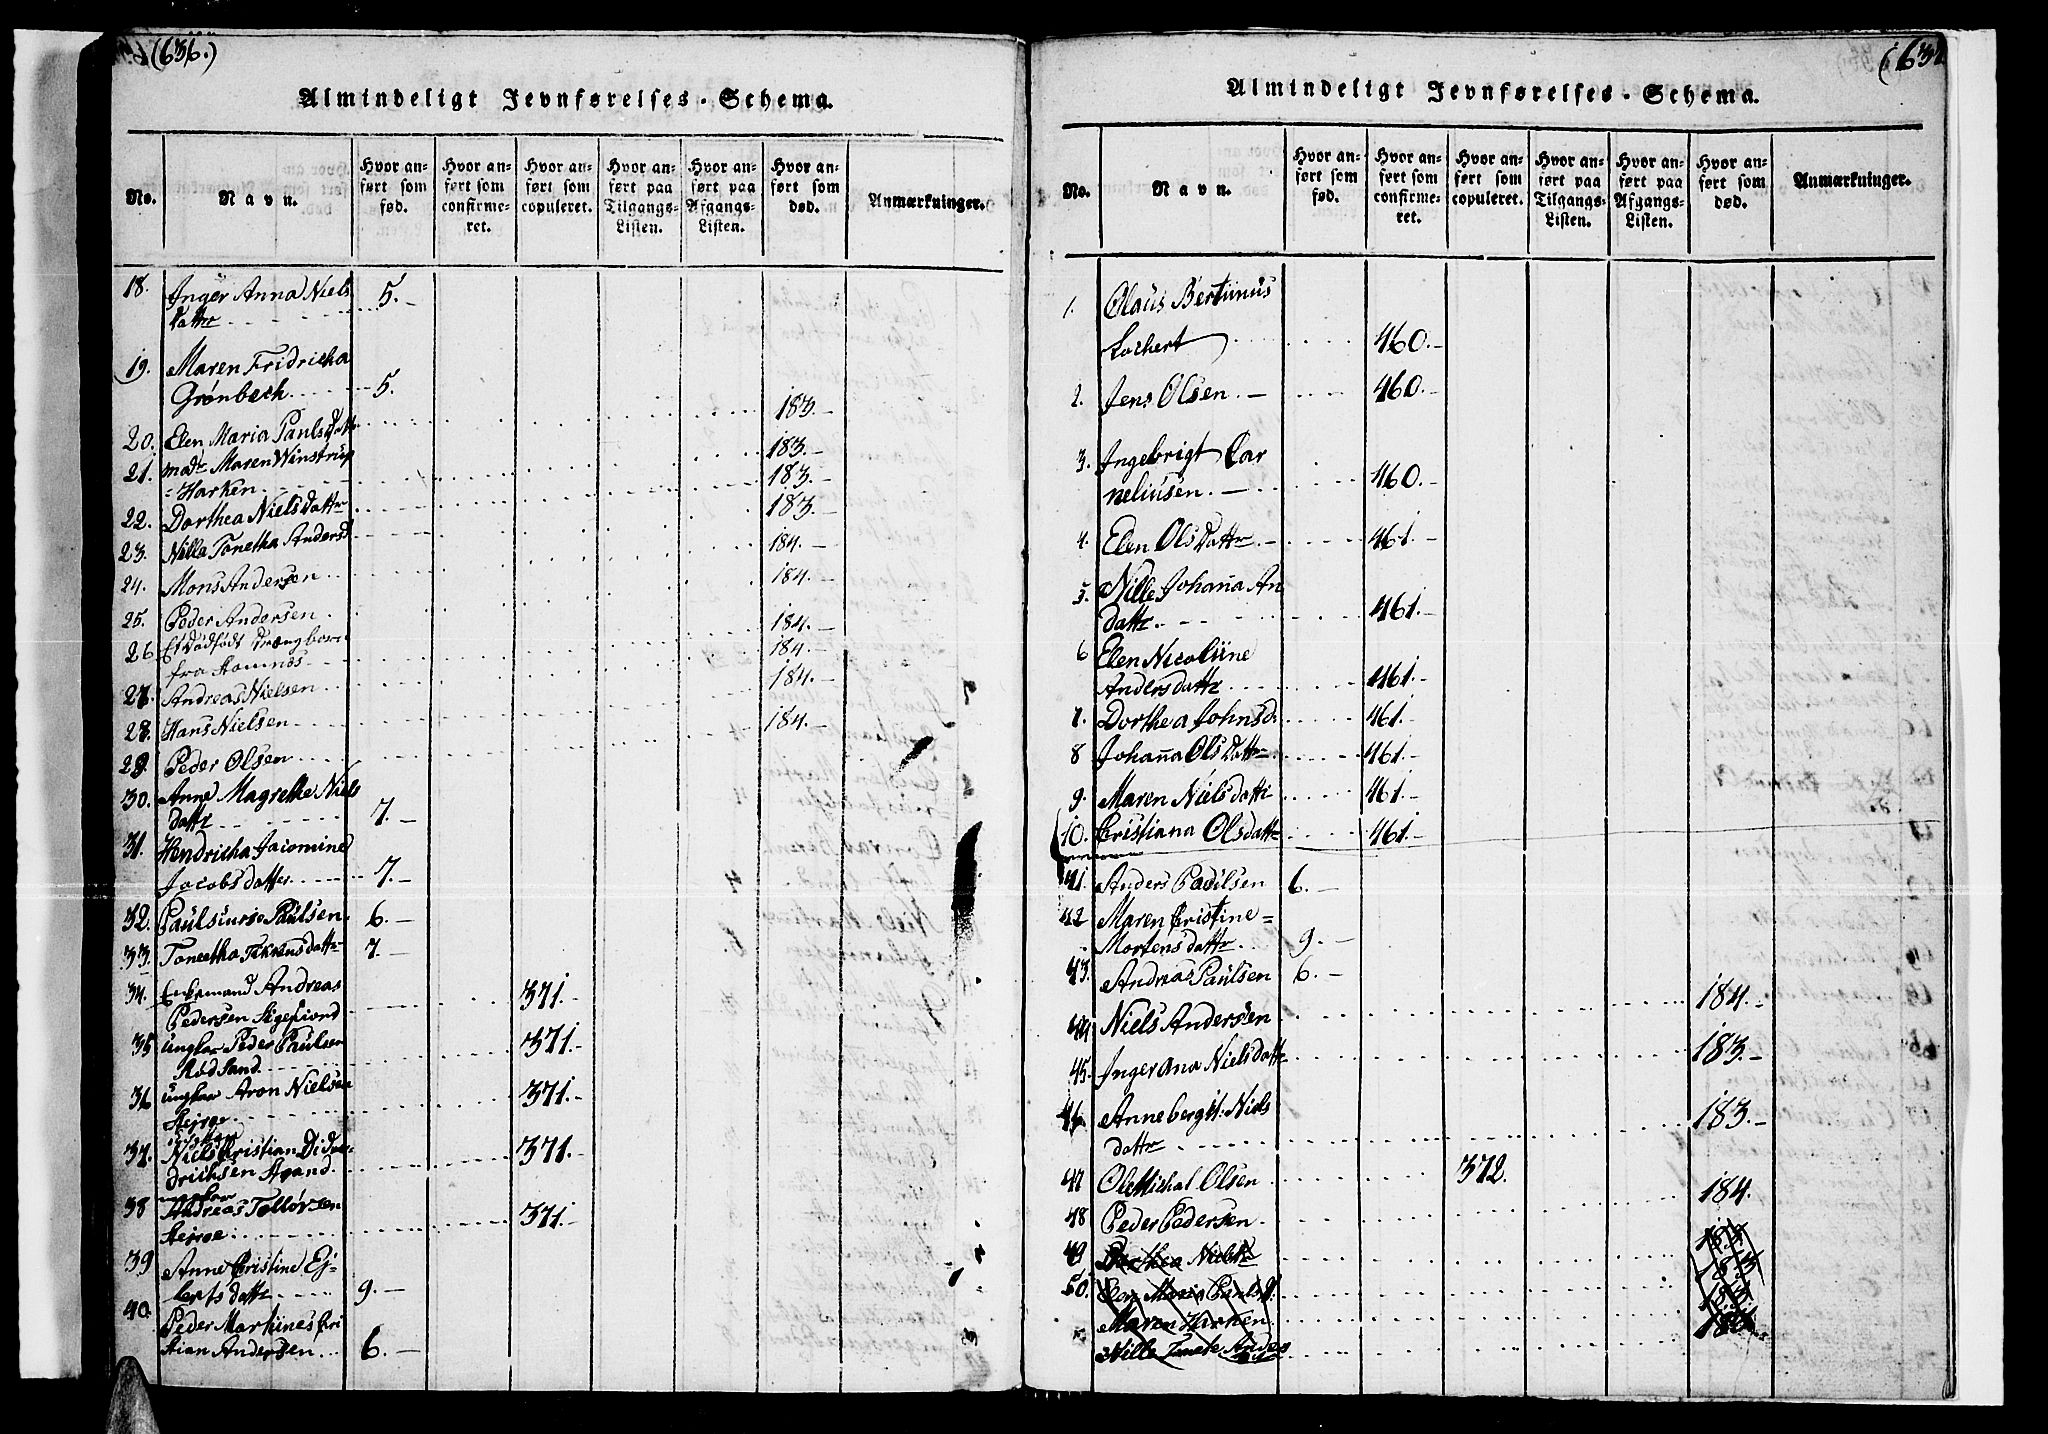 (636.)
Almindeligt Jevnførelses-Schema.
No.
Navn.
Hvor anført som fød.
Hvor anført som confirmeret.
Hvor anført som copuleret.
Hvor anført paa Tilgangs-Listen.
Hvor anført paa Afgangs-Listen.
Hvor anført som død.
Anmærkninger.
18. Inger Anna Niels 5.-
Dattr
19. Maren Fridricha
Grønbech 5.
20. Elen Maria Pauls Dattr 183.-
21. Madr Maren Winstrup
Harken 183.-
22. Dorthea Niels Dattr 183.-
23. Nilla Tonetha Andersd 183.-
24. Mons Andersen 184.-
25. Peder Andersen 184.-
26 Et Dødfødt Drængbarn
fra 184.-
27. Andreas Nielsen 184.-
28. Hans Nielsen 184.-
29. Peder Olsen 184.-
30. Anne Magrethe Niels
dattr 7.-
31. Hendricha Jacomine
Jacobsdatter 7.-
32. Paulsen 6.-
33. Tonetha dattr 7.-
34. Enkemand Andreas
Pedersen 371.-
35 ungkar Peder Paulsen
Rød Sand 371.-
36 ungkar Aron Nielsen
Stejroe 371.-
37. Niels Cristian Didrichsen 371.-
38 Andreas Tolløvsen
Stejroe 371.-
39 Anne Cristine Ejlerts dattr 9.-
40. Peder Martines Cristian Andersen 6.-
(637
Almindeligt Jevnførelses-Schema.
No.
Navn.
Hvor anført som fød.
Hvor anført som confirmeret.
Hvor anført som copuleret.
Hvor anført paa Tilgangs-Listen.
Hvor anført paa Afgangs-Listen.
Hvor anført som død.
Anmærkninger.
1. Olaus Bertinus
Lochert 460.-
2. Jens Olsen.- 460.-
3. Ingebrigt Cor
neliusen.- 460.-
4. Elen Ols Dattr.- 461.-
5. Nille Johana An
dattr. 461.-
6 Elen Nicoliine
Andersdattr 461.-
7. Dorthea Johnsd. 461.-
8 Johana Ols Dattr 461.-
9. Maren Nielsdattr 461.-
10. Cristiana Olsdattr 461.-
41. Anders Paulsen 6.-
42 Maren Cristine
Mortensdattr 9.-
43. Andreas Paulsen 6.-
44 Niels Andersen 184.-
45. Inger Ana Nielsdattr 183.-
46 Anne bergit: Niels
dattr 183.-
47 Ole Michal Olsen 372.
48 Peder Pedersen 184.
49 Dorthea
50. Elen Maria Pauls d.
Maren Harken
Nille Tonete Anders